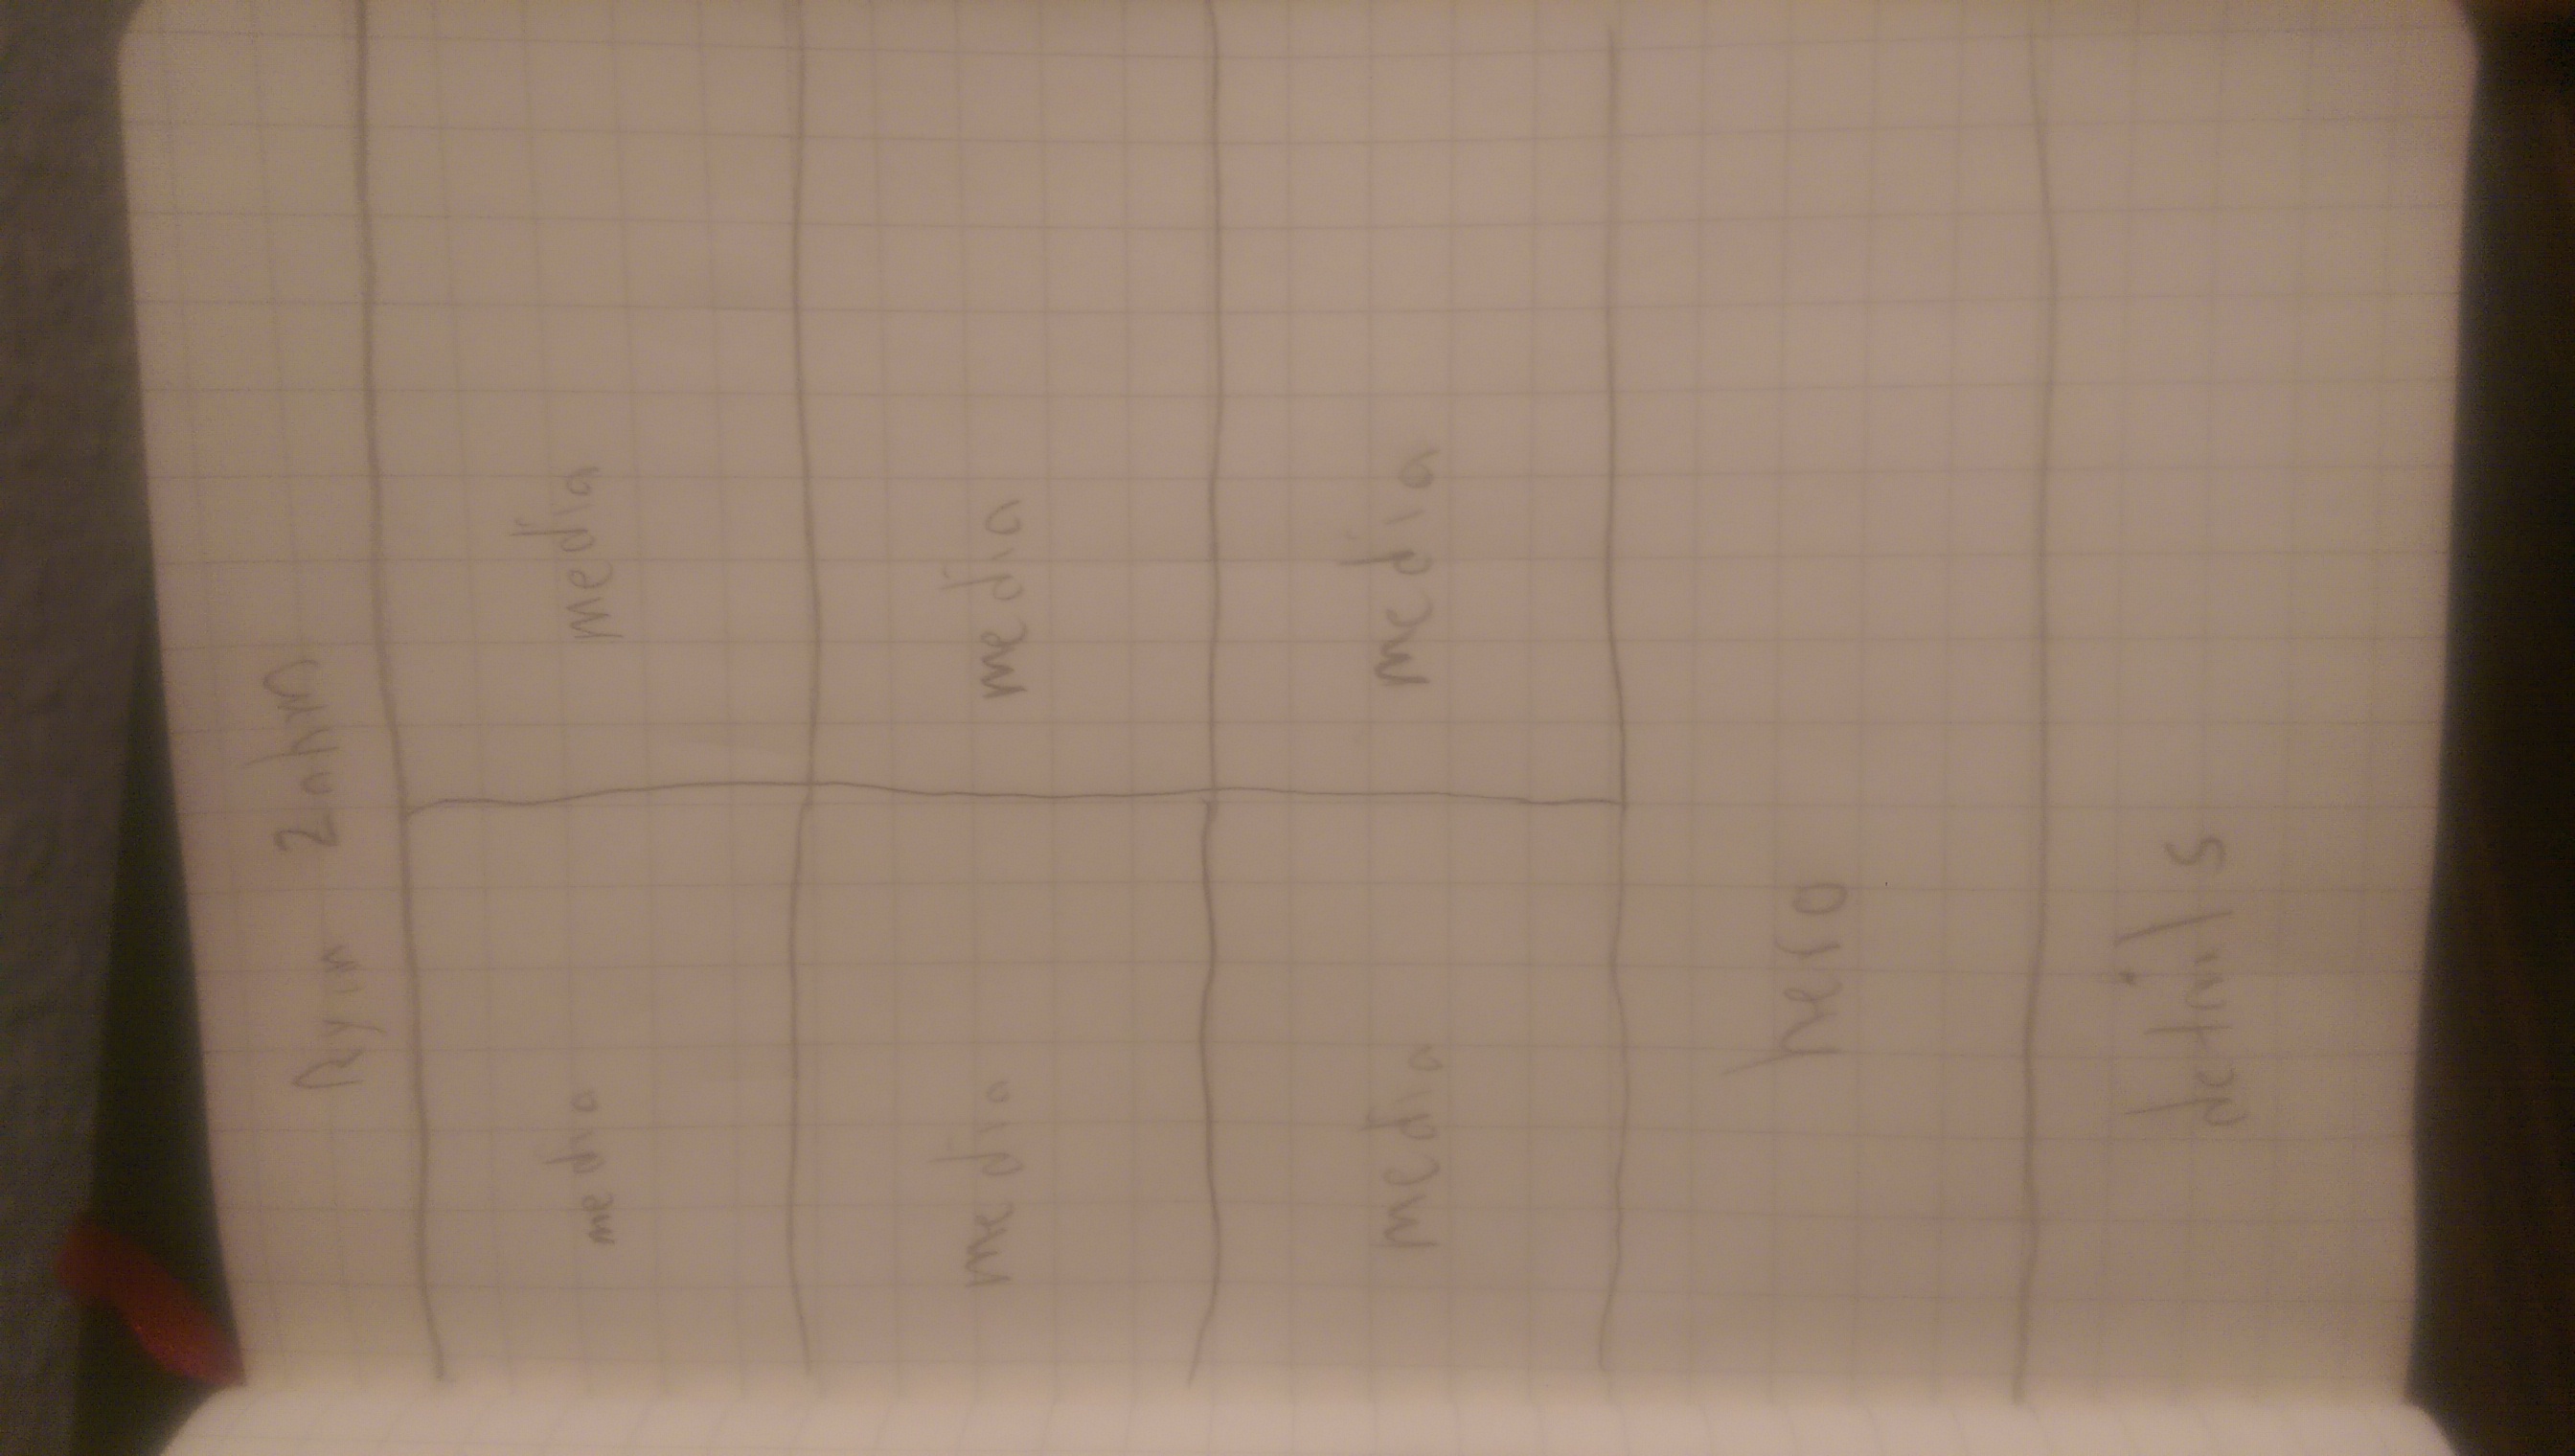 Ryan Zahm
media media
media media
media media
hero
details